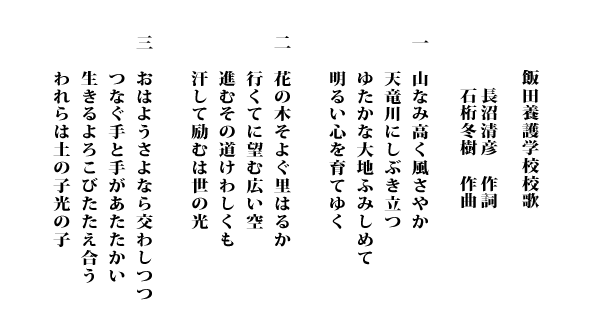 飯田養護学校校歌
長沼清彦　作詞
石桁冬樹　作曲
一
山なみ高く風さやか
天竜川にしぶき立つ
ゆたかな大地ふみしめて
明るい心を育てゆく
二
花の木そよぐ里はるか
行くてに望む広い空
進むその道けわしくも
汗して励むは世の光
三
おはようさよなら交わしつつ
つなぐ手と手があたたかい
生きるよろこびたたえ合う
われらは土の子光の子